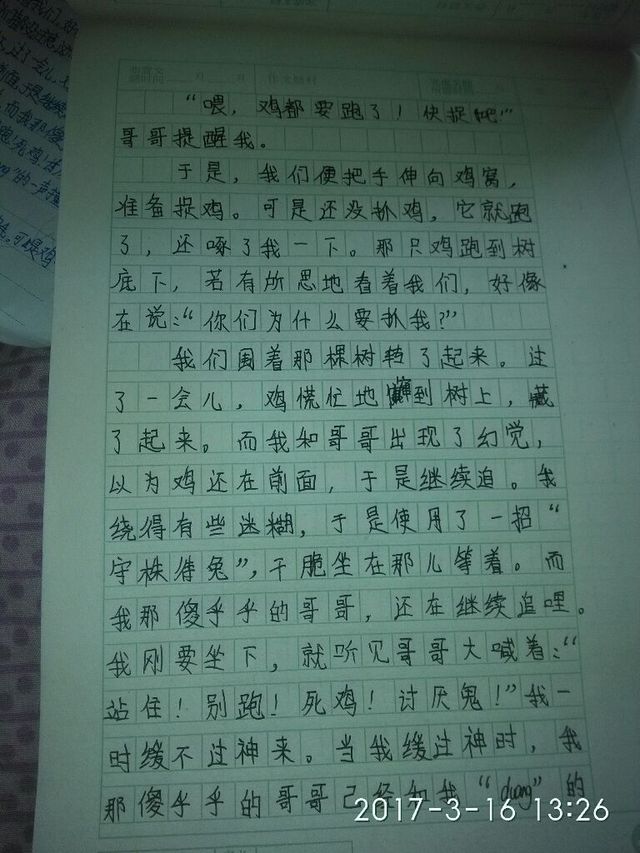 “喂，鸡都要跑了！快捉吧！”
哥哥提醒我。
于是，我们便把手伸向鸡窝，
准备捉鸡。可是还没扒鸡，它就跑
了，还啄了我一下。那只鸡跑到树
底下，若有所思地看着我们，好像
在说：“你们为什么要扒我？”
我们围着那棵树转了起来。过
了一会儿，鸡慌忙地到树上，藏
了起来。而我和哥哥出现了幻觉，
以为鸡还在前面，于是继续追。我
绕得有些迷糊，于是使用了一招“
守株待兔”，干脆坐在那儿等着。而
我那傻乎乎的哥哥，还在继续追哩。
我刚要坐下，就听见哥哥大喊着：“
站住！别跑！死鸡！讨厌鬼！”我一
时缓不过神来。当我缓过神时，我
那傻乎乎的哥哥已经和我“duang”的
2017-3-16 13:26